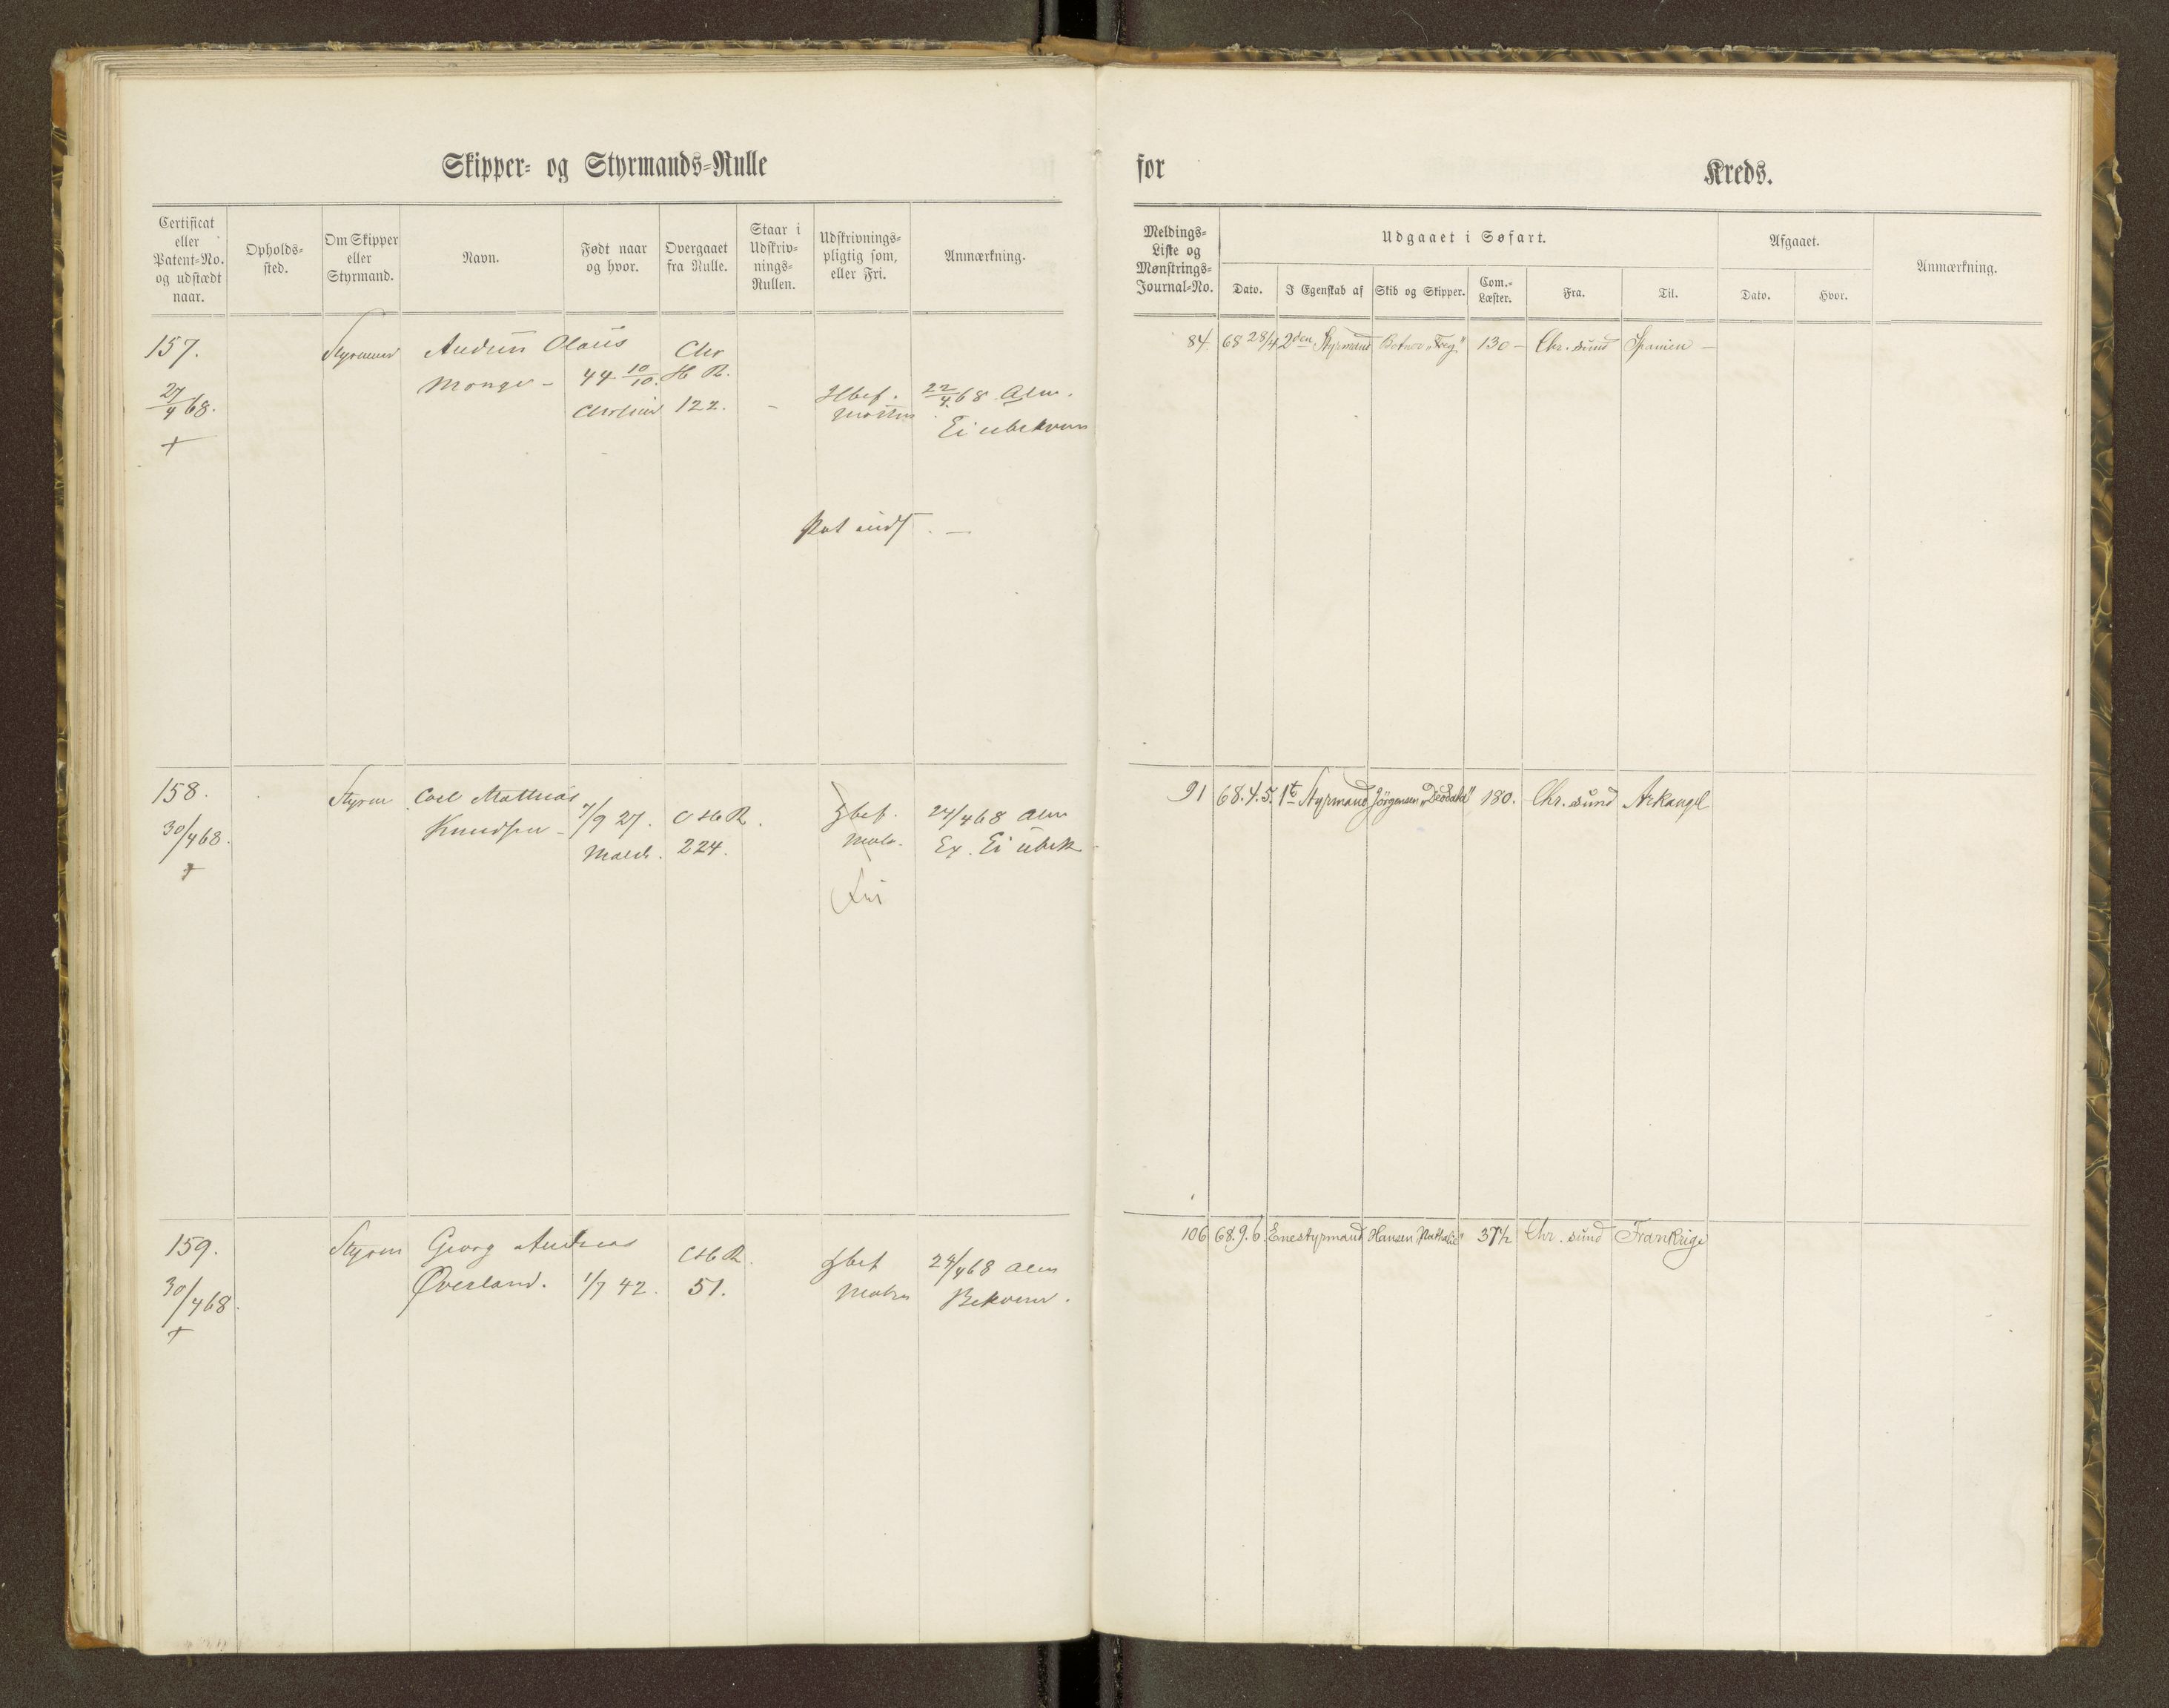 Skipper- og Styrmands-Rulle
for
Kreds.
Certificat eller Patent-No. og udstædt naar.
Opholds-sted.
Om Skipper eller Styrmand.
Navn.
Født naar og hvor.
Overgaaet fra Rulle.
Staar i Udskriv-nings-Rullen.
Udskrivnings-pligtig som, eller Fri.
Anmærkning.
Meldings-Liste og Mønstrings-Journal-No.
Udgaaet i Søfart.
Dato.
I Egenskab af
Skib og Skipper.
Com.-Læster.
Fra.
Til.
Afgaaet.
Dato.
Hvor.
Anmærkning.
157.
27/4 68.
+
Audun Olaus
Monge -
44 10/10.
Chr
H R.
122.
22/4 68 Alm.
Ei ubekvem
84 68 28/4 2den Styrmand 130 - Chr. sund Spanien -
158.
30/4 68.
+
Styrm
Carl Mathias
Knudsen -
7/9 27.
Molde.
C H R.
224.
Fri
24/4 68 Alm
Ex. Ei ubek
91 68. 4. 5. 1te Styrmand Jörgensen „Deodata" 180. Chr. sund Arkangel
159.
30/4 68.
+
Styrm
Georg Andreas
Øverland.
1/7 42.
C H R.
51.
Matrs
24/4 68 Alm
Bekvem.
106 68. 9. 6. Enestyrmand Hansen „Nathalie" 37½ Chr. sund Frankrige